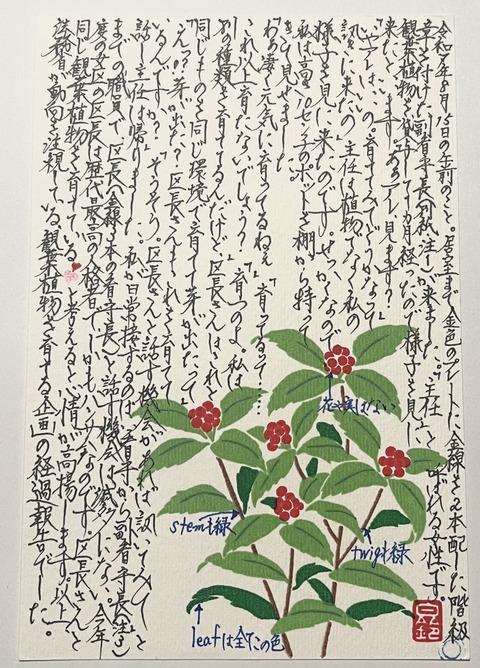 令和7年8月15日の午前のこと。居室まで金色のプレートに金線を2本配した階級
章を付けた副看守長(別紙、注1)が来ました。"主任"と呼ばれる女性です。
観葉植物を貸与して1カ月経ったので様子を見に
来たといいます。「あのアレ、見ます?」
いいの。育ててみてどうかなって
訊きに来たの。」主任は植物でなく私の
様子を見に来たのです。せっかくなので
私は高さ10センチのポットを棚から持って
きて見せました。
「わぁ凄い元気に育ってるねぇ」「育ってるって……
これ以上育たないでしょう?」「育つのよ。私は
別の種類を育ててるんだけど、区長さんはこれと
同じものを同じ環境で育てて芽が出たって」
「えっ?芽が出た?区長さんもこれを育てて
いるんですか?」「そうそう。区長さんと話す機会があれば訊いてみて」と
話し主任は帰りました。私が日常接するのは看守から副看守長(注2)
までの職員で、区長(金線3本の看守長)と話す機会は滅多にない。今年
度の女区の区長は歴代最高の人格者で、しかもハンサムなのです。区長さんと
同じ観葉植物を育てている と考えると心情が高揚します。以上、
読者が動向を注視している、観葉植物を育する企画の経過報告でした。
花や実はない
stemも緑
twigも緑
leafは全てこの色